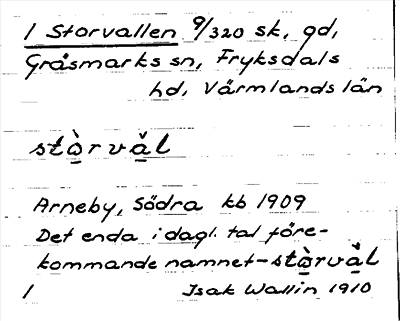 1 Storvallen 9/320 sk, gd,
Gräsmarks sn, Fryksdals
hd, Värmlands län
stòrvǎl
Arneby, Södra kb 1909
Det enda i dagl. tal före-
kommande namnet - stòrvǎl
1 Isak Wallin 1910